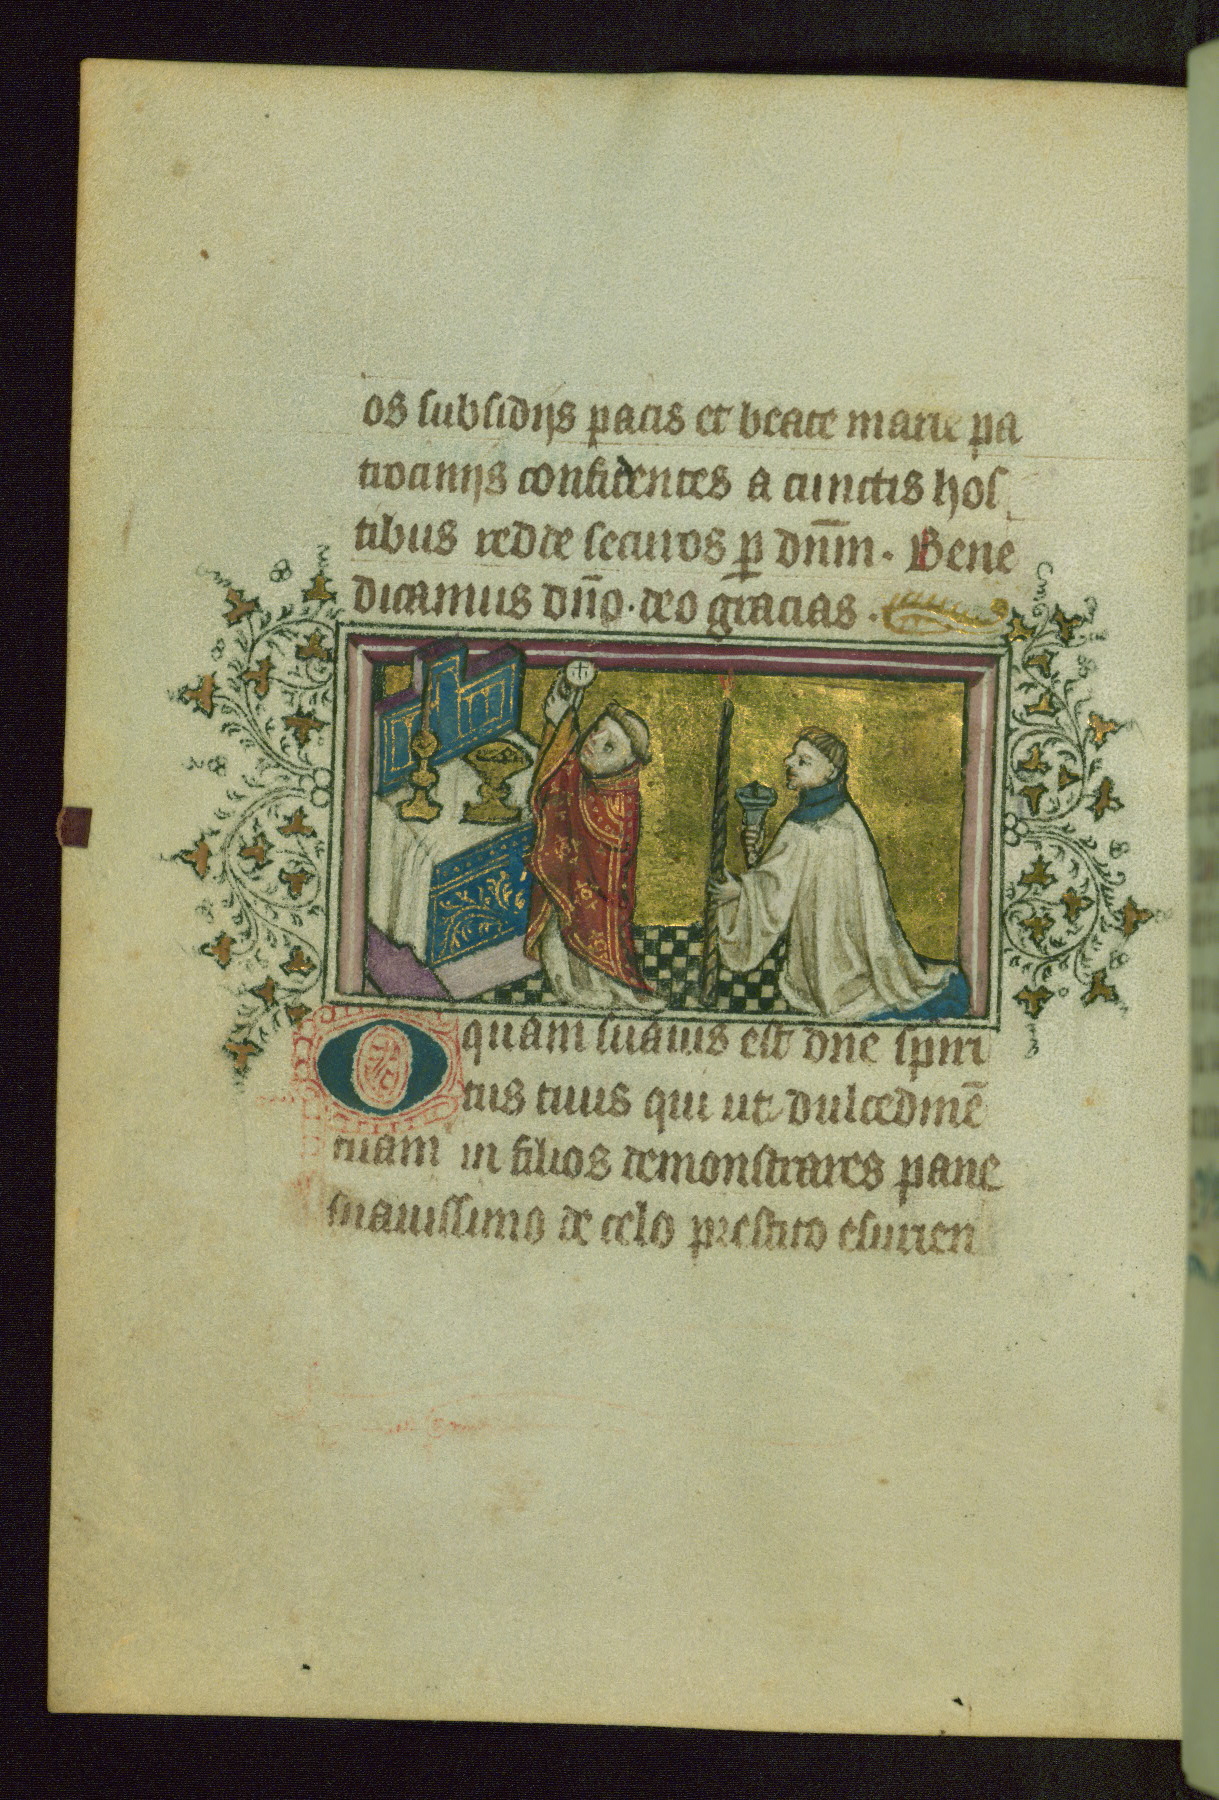 os subsidijs pacis et beate marie pa
trocinijs confidentes a cunctis hos
tibus redde securos p̱ dn̄m. Bene
dicamus dn̄o. deo gracias.
O quam suauis est dn̄e spiri
tus tuus qui ut dulcedinē
tuam in filios demonstrares pane
suauissimo de celo prestito esurien